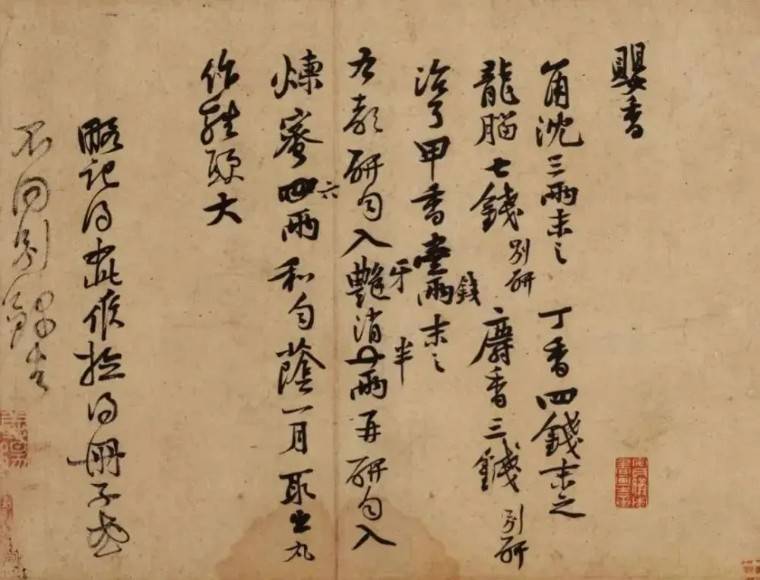 嬰香
角沈三兩末之 丁香四錢末之
龍腦七錢別研 麝香三錢別研
治了甲香壹錢末之
右都研勻入牙消半兩再研勻入
煉蜜六兩和勻蔭一月取出丸
作雞頭大
略記得此候檢得冊子或
不同別錄去